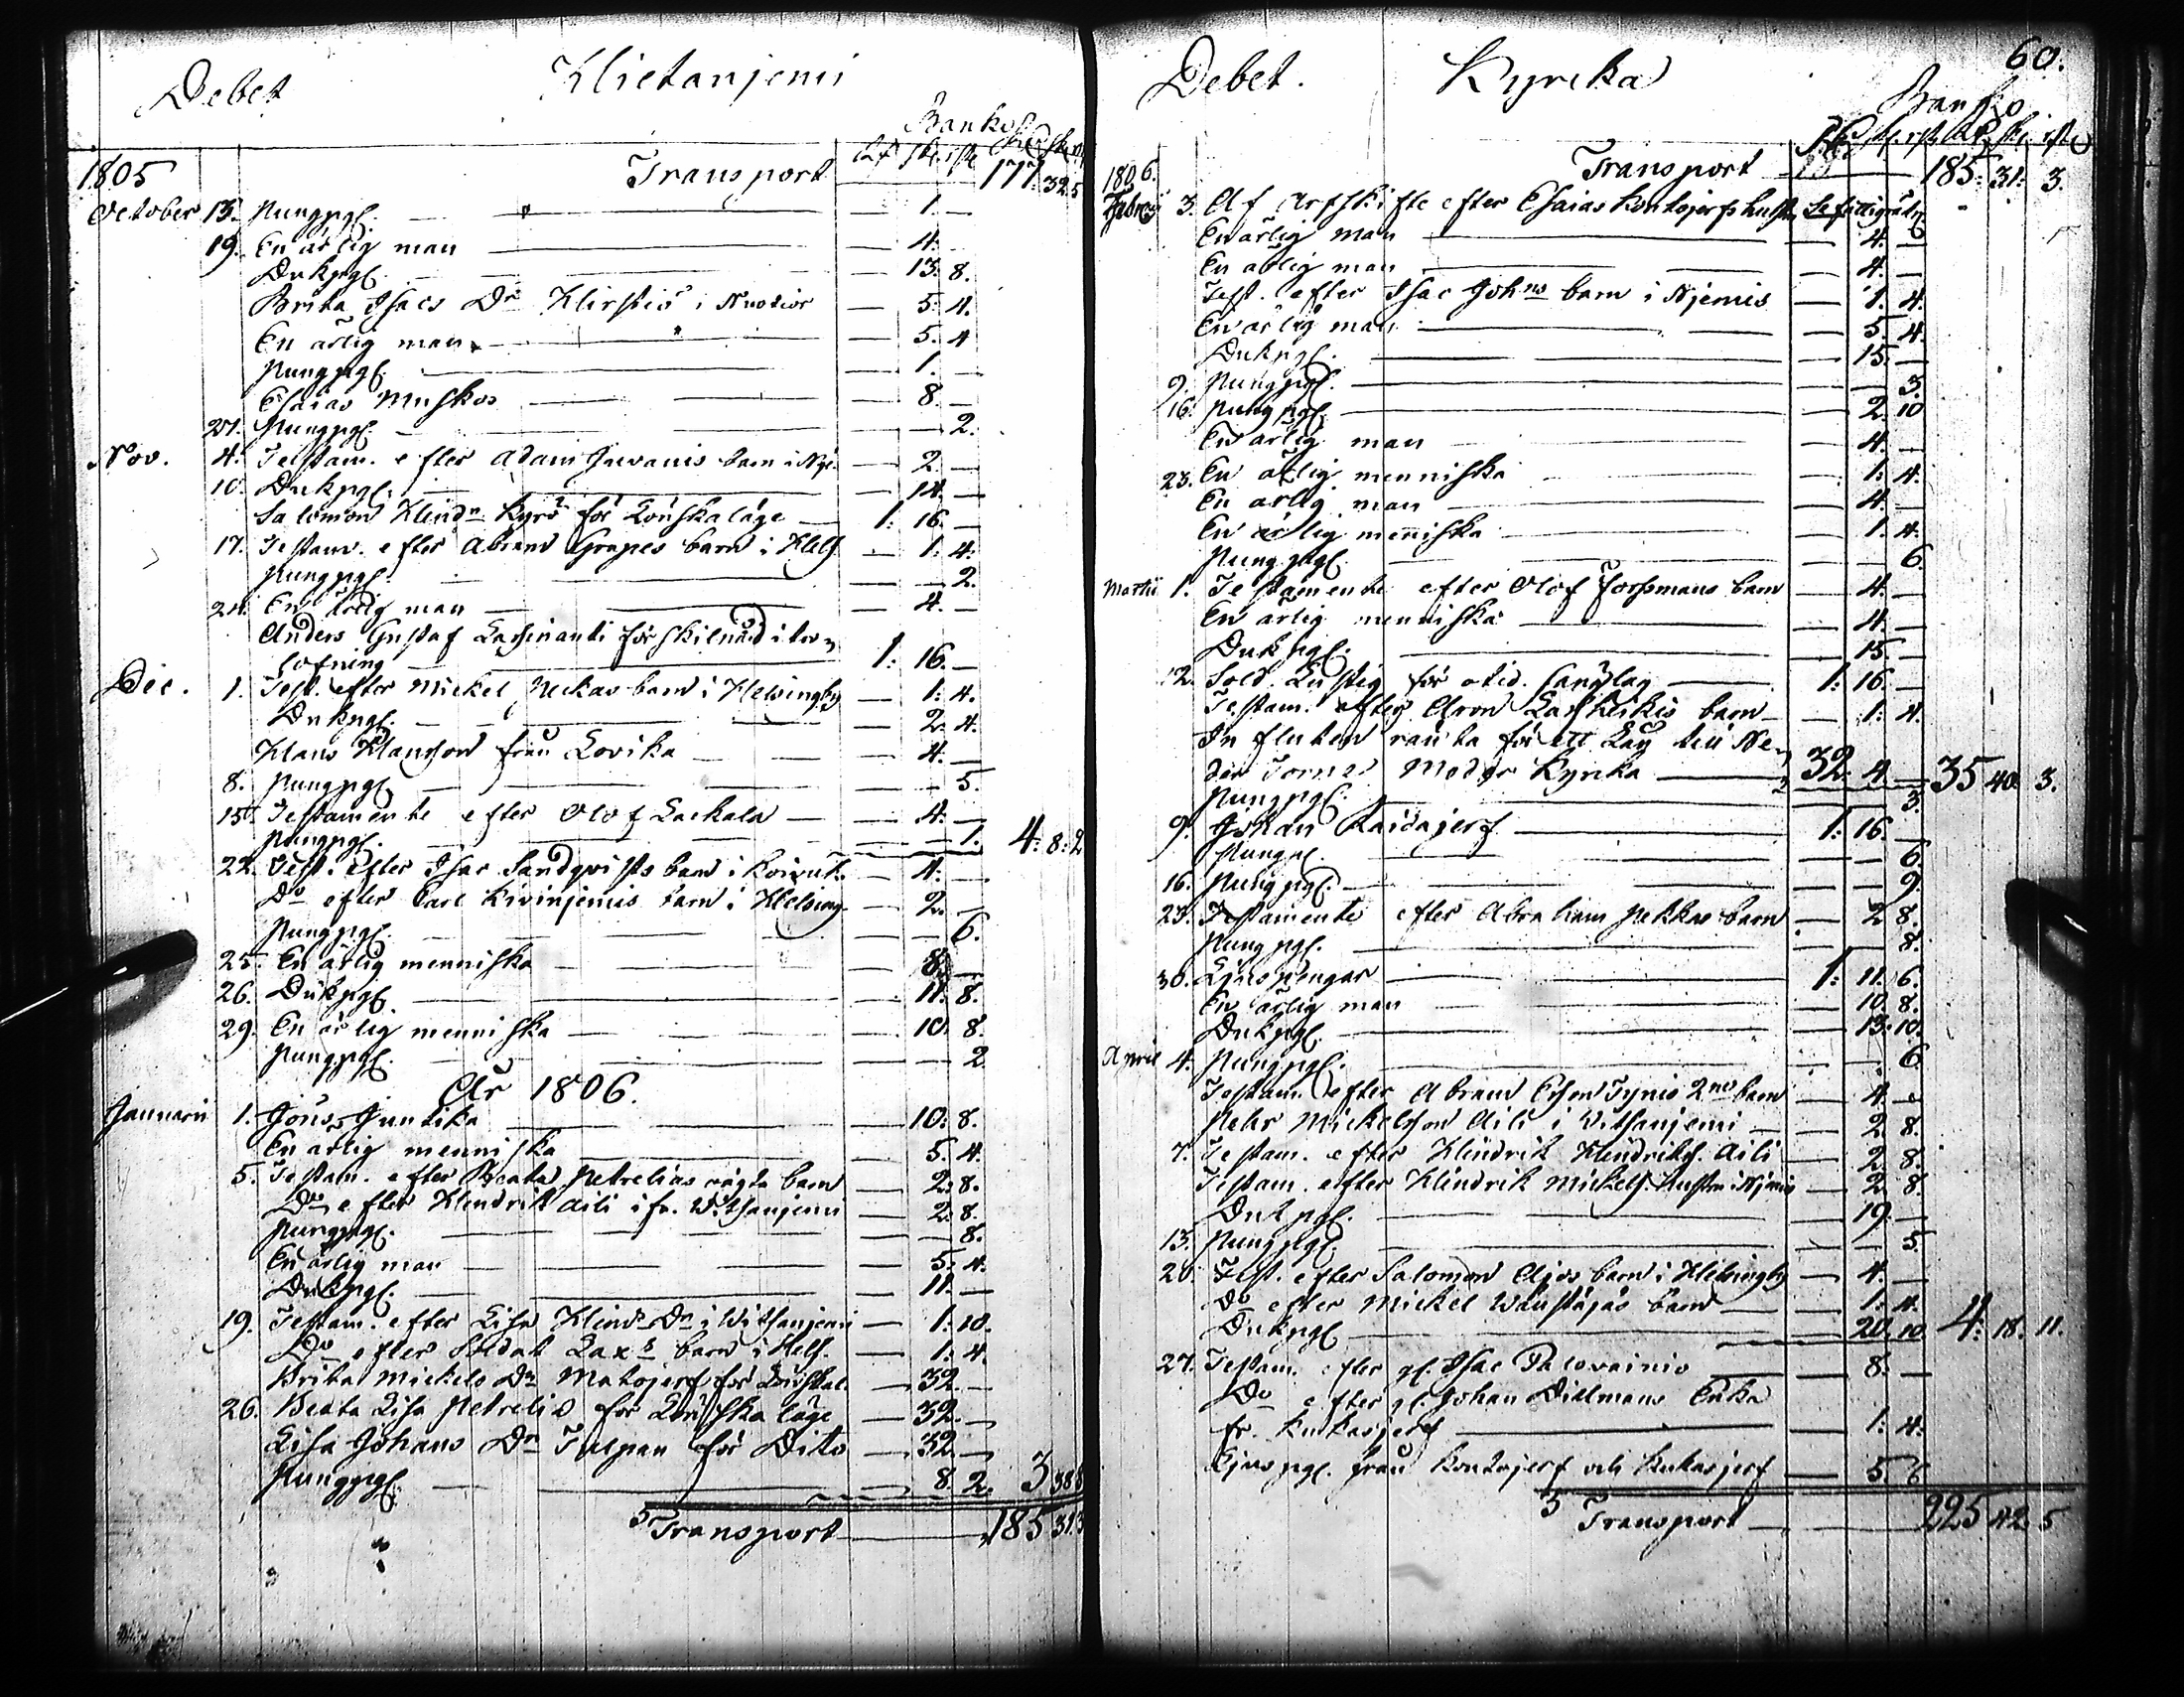 Debet Hietanjemi
Banko
Rd sk. rst. Rd sk. r
1805 Transport 177: 32 5
October 13. Pungpgr. 1. —
19. En ärlig man — 4. —
Dukpgr. — 13. 8.
Brita Isacs Dr Hirstiö i Nuotior — 5. 4.
En ärlig man — 5. 4
Pungpgr. — 1. —
Esaias Muskos — 8. —
27. Pungpgr. — 2.
Nov. 4. Testam. efter Adam Juvanis barn i Nje. — 2. —
10. Dukpgr. — 14. —
Salomon Hindr. Kyrö för Lönskaläge 1: 16. —
17. Testam. efter Abram Grapes barn i Hels. — 1: 4.
Pungpgr. — 2.
24. En ärlig man — 4. —
Anders Gustaf Lassinanti för skilnad i tro=
lofning 1: 16. —
Dec. 1. Test. efter Mickel Pekkas barn i Helsingby — 1: 4.
Dukpgr. — 2. 4.
Hans Hansson från Lovika — 4. —
8. Pungpgr. — 5.
15. Testamente efter Olof Laekala — 4. —
Pungpgr. — 1. 4: 8: 2
22. Test. efter Isac Sandqvists barn i Koivuk. — 4. —
Do efter Carl Kivinjemis barn i Helsing. — 2. —
Pungpgr. — 6.
25. En ärlig menniska — 8. —
26. Dukpgr. — 11. 8.
29. En ärlig menniska — 10. 8.
Pungpgr. — 2
År 1806.
Januarii 1. Jöns Juntika — 10: 8.
En ärlig menniska — 5. 4.
5. Testam. efter Beata Petrelias oägta barn — 2: 8.
Do efter Hendrik Aili ifr. Witsanjemi — 2: 8.
Pungpgr. — 8.
En ärlig man — 5. 4.
Dukpgr. — 11. —
19. Testam. efter Lisa Hind. Dr i Witsanjemi — 1: 10.
Do efter Soldat Lax s barn i Hels. — 1: 4.
Brita Mickels Dr Matojerf för Lönskal. — 32. —
26. Beata Lisa Petrelia för Lönskaläge — 32. —
Lisa Johans Dr Tulpan för Dito — 32. —
Pungpgr. 8 2. 3 38 8
Transport 185 31. 3
60.
Debet. Kyrcka
Banko
1806. Transport 185: 31: 3.
Febr. 3. Af Arfskifte efter Esaias Kontojerfs hustru
En ärlig man — 4. —
En ärlig man — 4. —
Test. efter Isac Johns barn i Njemis — 1. 4.
En ärlig man — 5. 4
Dukpgr. — 15. —
9. Pungpgr. — 3.
16. Pungpgr. — 2. 10
En ärlig man — 4. —
23. En ärlig menniska — 1: 4.
En ärlig man — 4. —
En ärlig menniska — 1: 4.
Pungpgr. — 6.
Martii 1. Testamente efter Olof Forssmans barn — 4. —
En ärlig menniska — 4. —
Dukpgr. — 15. —
2. Sold. Lustig för otid. sänglag 1: 16. —
Testam. efter Aron Lassheikis barn — 1: 4.
Influten ränta för ett Lån till Ne=
der Torneå Moder Kyrka 32. 4 — 35 40. 3.
Pungpgr. — 3.
9. Johan Kaidajerf 1: 16. —
Pungpgr. — 6.
16. Pungpgr. — 9.
23. Testamente efter Abraham Pekkas barn — 2 8.
Pungpgr. — 8.
30. Ljuspengar 1: 11. 6.
En ärlig man — 10. 8.
Dukpgr. — 13. 10.
April 4. Pungpgr. — 6
Testam. efter Abram Ersson Tynis 2ne barn — 4. —
Pehr Mickelsson Aili i Witsanjemi — 2. 8.
7. Testam. efter Hindrik Hindriks. Aili — 2 8.
Testam. efter Hindrik Mickels. hustru i Njemis — 2. 8.
Dukpgr. — 19. —
13. Pungpgr. — 5.
20. Test. efter Salomon Ajos barn i Helsingby — 4. —
Do efter Mickel Waustajäs barn — 1: 4.
Dukpgr. — 20. 10 4: 18: 11.
27. Testam. efter gl. Isac Palovainio — 8. —
Do efter gl. Johan Dillmans Enka
fr. Kukasjerf — 1: 4.
Ljuspgr. från Kontojerf och Kukasjerf — 5 6
Transport 225 42 5